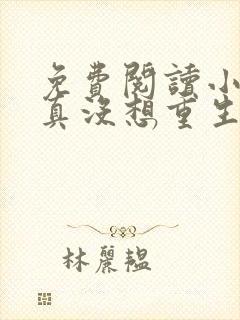 免費閱讀小
真沒想重生
林麗韞